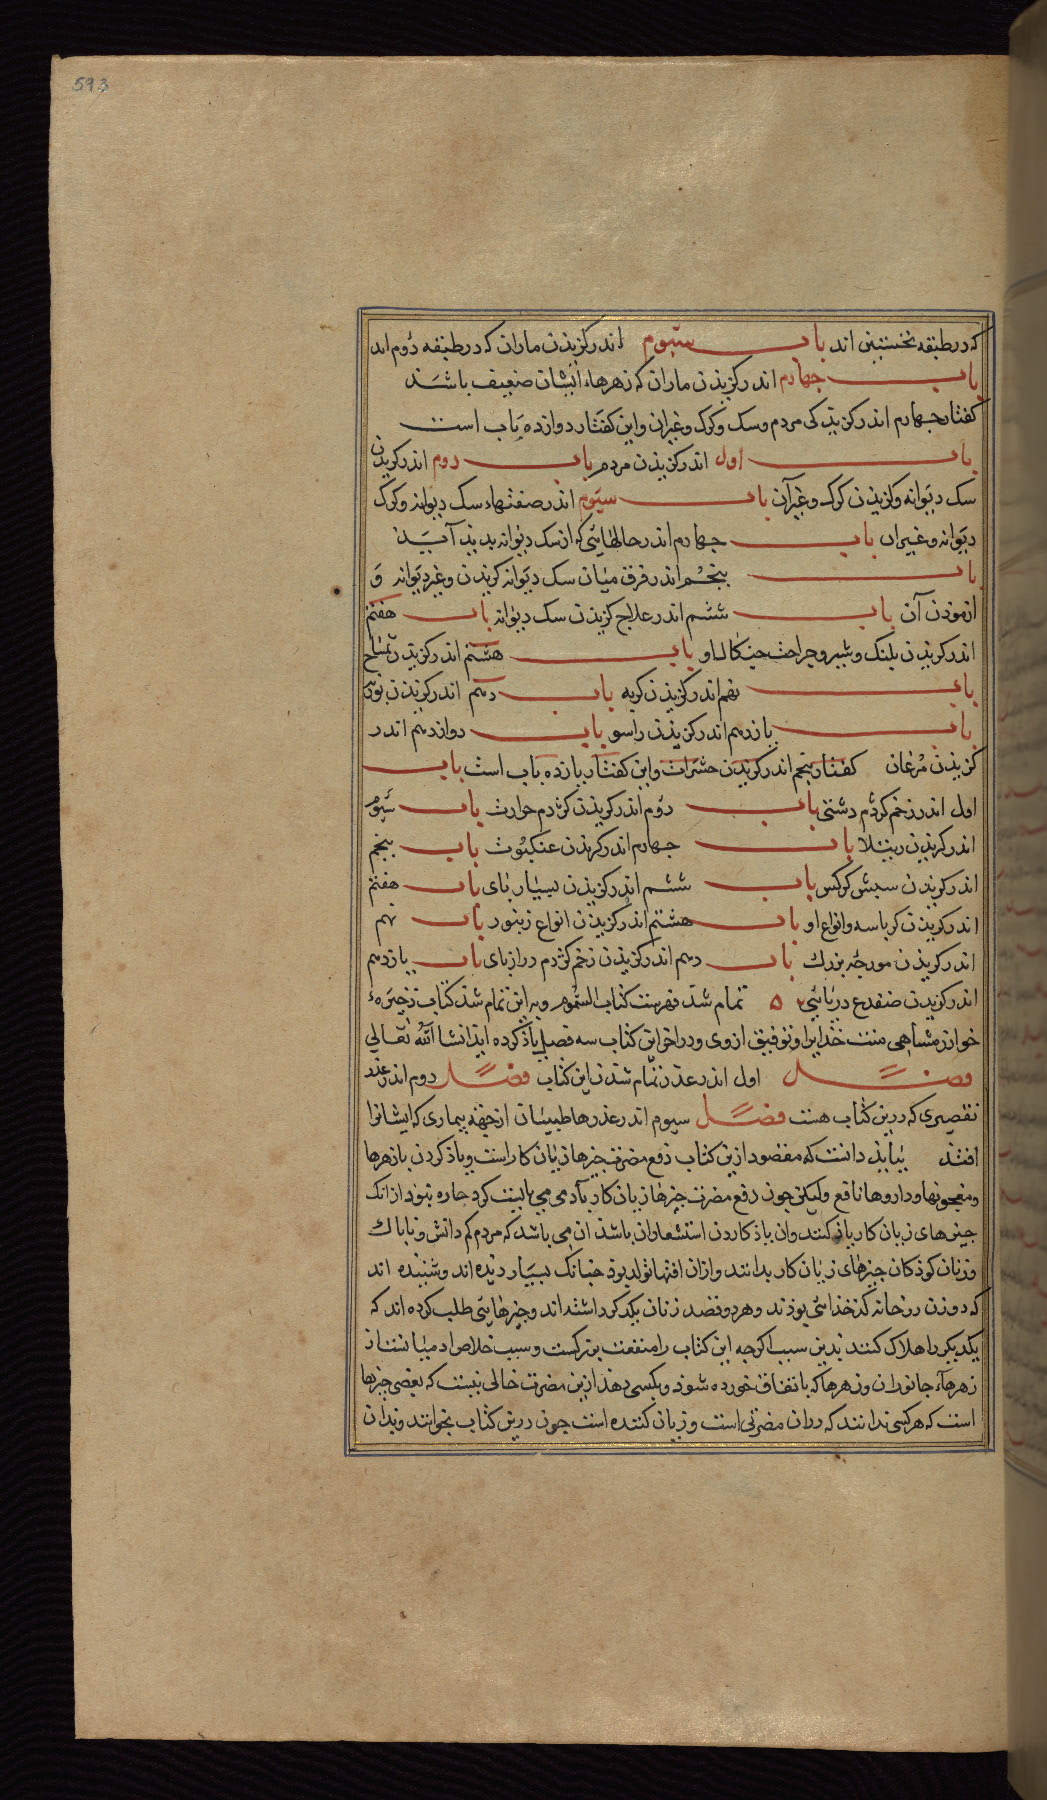 593
که در طبقه نخستین اند باب سیوم اندر کزیدن ماران که در طبقه دوم اند
باب چهارم اندر کزیدن ماران که زهرهاء ایشان ضعیف باشند
کفتار چهارم اندر کزیدکی مردم و سک و کرک و غیران و این کفتار دوازده باب است
باب اول اندر کزیدن مردم باب دوم اندر کزیدن
سک دیوانه و کزیدن کرک و غیر آن باب سیوم اندر صفتهاء سک دیوانه و کرک
دیوانه و غیران باب چهارم اندر حالهایی که از سک دیوانه پدید آید
باب پنجم اندر فرق میان سک دیوانه کزیدن و غیر دیوانه و
ازمودن آن باب ششم اندر علاج کزیدن سک دیوانه باب هفتم
اندر کزیدن پلنک و شیر و جراحت چنکال او باب هشتم اندر کزیدن تمساح
باب نهم اندر کزیدن کربه باب دهم اندر کزیدن بوزنه
باب یازدهم اندر کزیدن راسو باب دوازدهم اندر
کزیدن مرغان کفتار پنجم اندر کزیدن حشرات و این کفتار یازده باب است باب
اول اندر زخم کژدم دشتی باب دوم اندر کزیدن کژدم جرارت باب سیوم
اندر کزیدن رتیلا باب چهارم اندر کزیدن عنکبوت باب پنجم
اندر کزیدن سبش کرکس باب ششم اندر کزیدن بسیار پای باب هفتم
اندر کزیدن کرباسه و انواع او باب هشتم اندر کزیدن انواع زنبور باب نهم
اندر کزیدن مورچه بزرک باب دهم اندر کزیدن زخم کژدم دراز پای باب یازدهم
اندر کزیدن ضفدع دریائی تمام شد فهرست کتاب السموم و به این تمام شد کتاب ذخیره
خوارزمشاهی منت خدایرا و توفیق ازوی و در اخر این کتاب سه فصل یاذ کرده اید انشا الله تعالی
فصل اول اندر عذر تمام شدن این کتاب فصل دوم اندر عذر
تقصیری که درین کتاب هست فصل سیوم اندر عذرها طبیبان از جهة بیماری که ایشانرا
افتد بباید دانست که مقصود ازین کتاب دفع مضرت چیزها زیان کار است و یاذ کردن پازهرها
و معجونها و داروها نافع ولیکن چون دفع مضرت چیزها زیان کار یاد می می بایست کرد چاره نبود از انک
چیزهای زیان کار یاذ کنند وان یاذ کاردن استشعار ان باشد ان می باشد که مردم کم دانش و ناپاک
و زنان کوذکان چیزهای زیان کار بدانند و ازان افتها تولد بوذ چنانک بسیار دیده اند و شنیده اند
که دو زن در خانه کدخدائی بودند و هر دو قصد زنان یکدکر داشته اند و چیزهایی طلب کرده اند که
یکدیکر را هلاک کنند بدین سبب اکرچه این کتاب را منفعت بزرکست و سبب خلاص ادمیانست از
زهرهاء جانوران و زهرها که باتفاق خورده شود و بکسی دهند ازین مضرت خالی نیست که بعضی چیزها
است که هر کسی ندانند که دران مضرتی است و زیان کننده است چون درین کتاب بخوانند و بدان